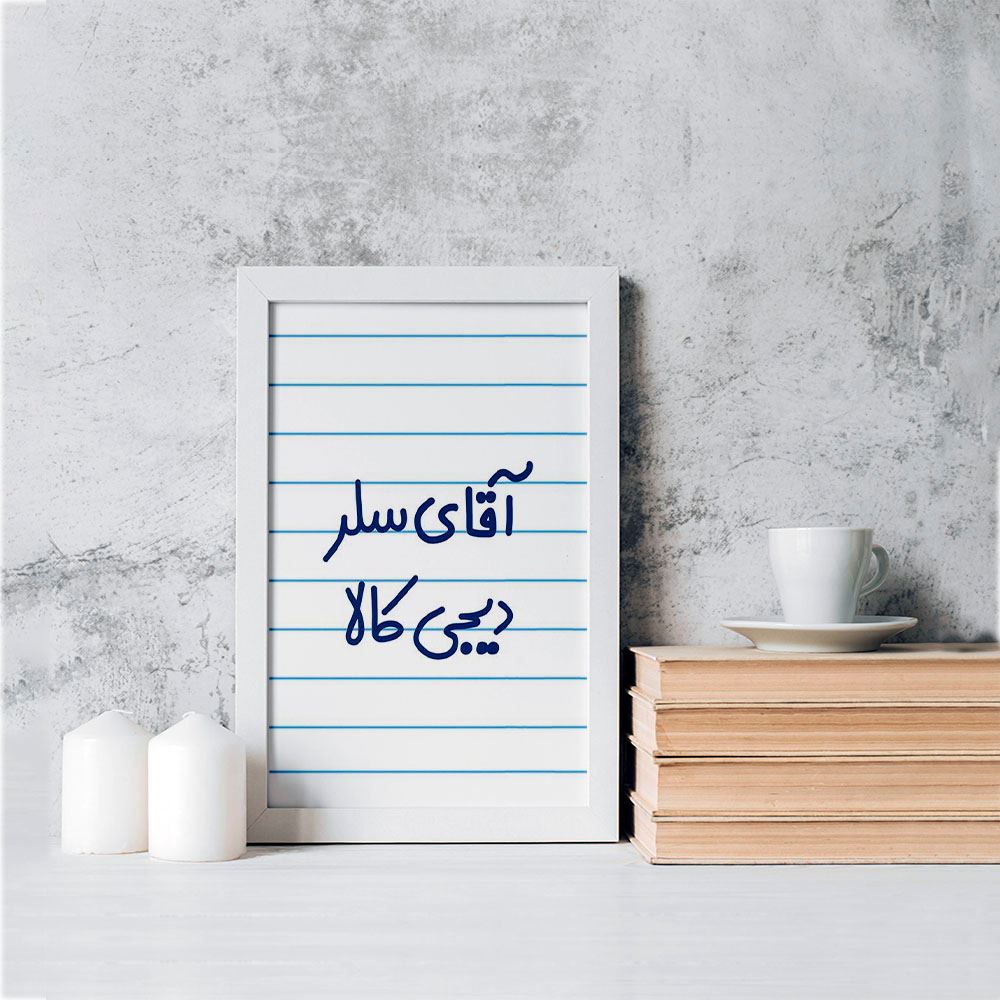 آقای سلر
دیجی کالا